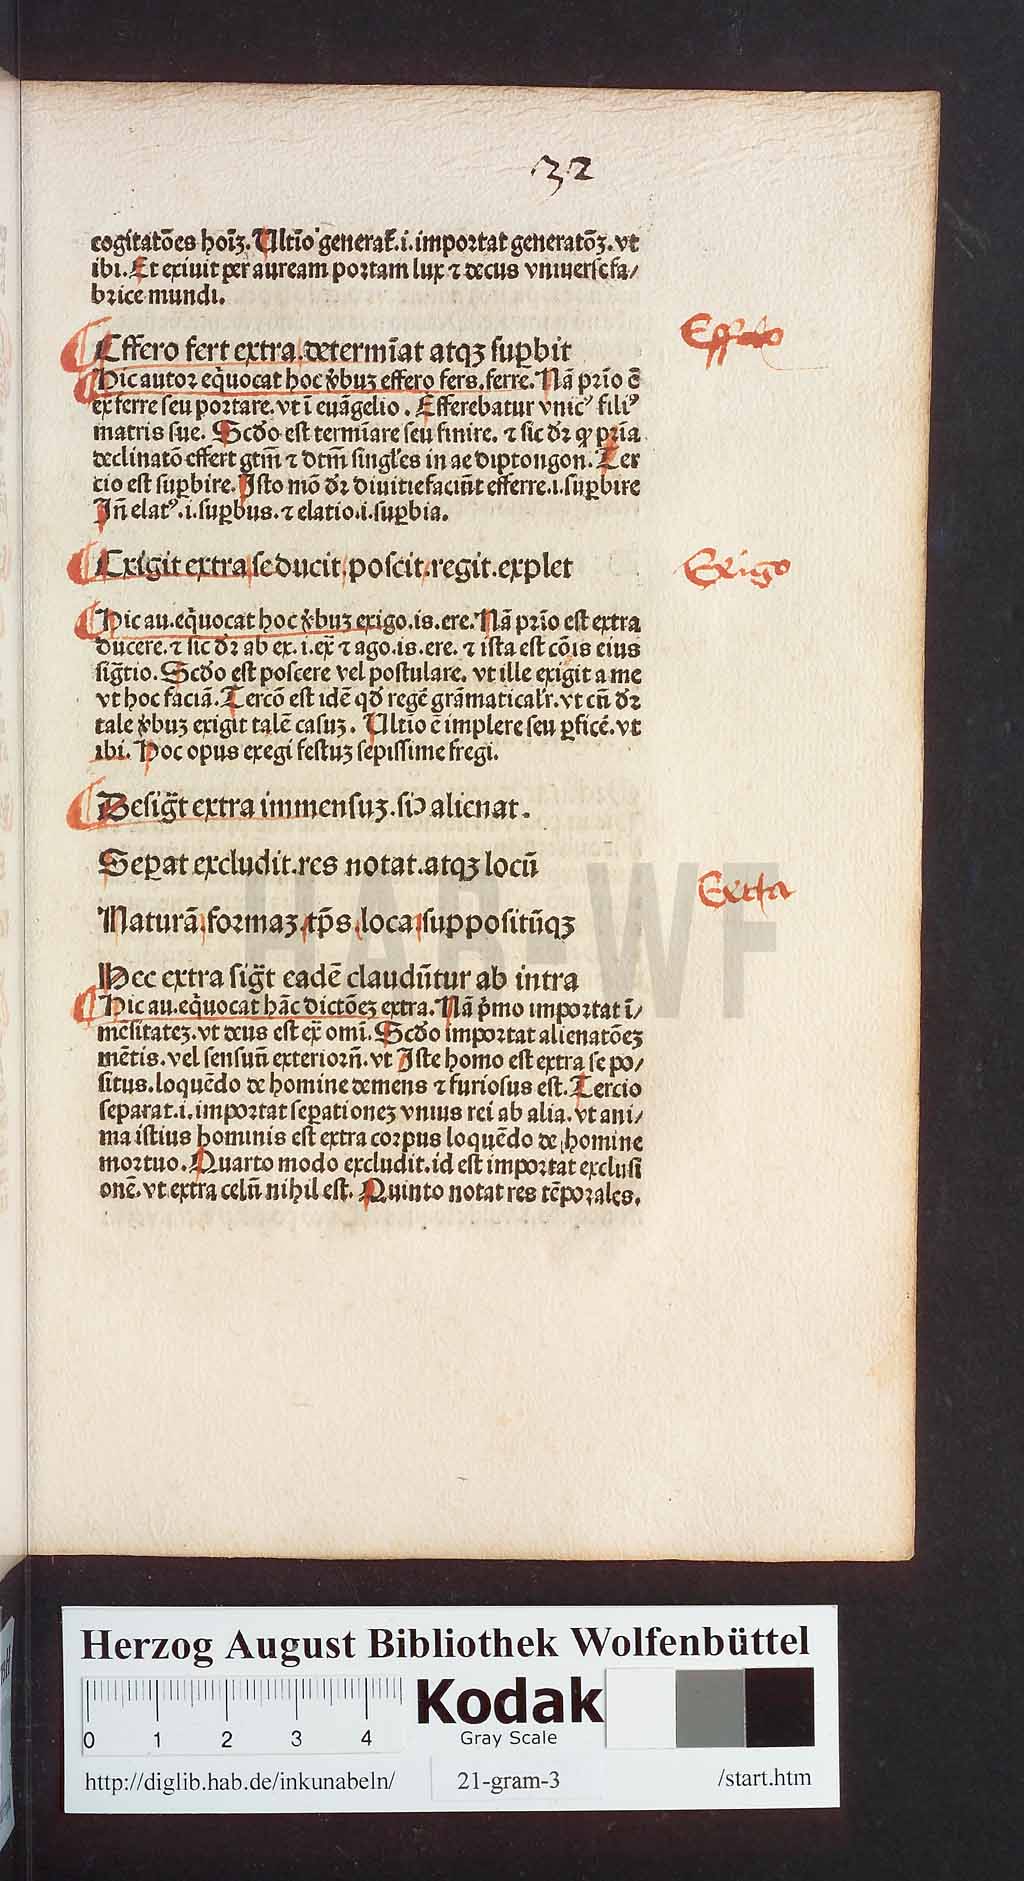 32
cogitatōes hoīꝫ. Ultīo generat̄.i. importat generatōꝫ. vt
ibi. Et exiuit per auream portam lux ⁊ decus vniuerse fa/
brice mundi.
Effero
Effero fert extra.determīat atqꝫ suꝑbit
Hic autor eq̄uocat hoc v̄buꝫ effero fers.ferre. Nā prīo ē
exferre seu portare. vt ī euāgelio. Efferebatur vnicꝰ filiꝰ
matris sue. Scd̄o est termīare seu finire. ⁊ sic dr̄ ꝙ prīa
declinatō effert gtm̄ ⁊ dtm̄ singl̄es in ae diptongon. Ter
cio est suꝑbire. Isto mō dr̄ diuitie faciūt efferre.i.suꝑbire
Iñ elatꝰ.i.suꝑbus.⁊ elatio.i.suꝑbia.
Exigo
Exigit extra se ducit.poscit.regit.explet
Hic au.eq̄uocat hoc v̄buꝫ exigo.is.ere. Nā prīo est extra
ducere.⁊ sic dr̄ ab ex.i.ex̄ ⁊ ago.is.ere. ⁊ ista est cōis eius
sigt̄io. Scd̄o est poscere vel postulare. vt ille exigit a me
vt hoc faciā. Tercō est idē qd̄ regē grāmaticalr̄. vt cū dr̄
tale v̄buꝫ exigit talē casuꝫ. Ultīo ē implere seu ꝑficē. vt
ibi. Hoc opus exegi festuꝫ sepissime fregi.
Desigt̄ extra immensuꝫ.siꝯ alienat.
Seꝑat excludit.res notat.atqꝫ locū
Exta
Naturā formaꝫ tp̄s loca suppositūqꝫ
Hec extra sigt̄ eadē claudūtur ab intra
Hic au.eq̄uocat hāc dictōeꝫ extra. Nā p̄mo importat ī/
mēsitateꝫ. vt deus est ex̄ omī. Scd̄o importat alienatōeꝫ
mētis. vel sensuū exteriorū. vt Iste homo est extra se po/
situs. loquēdo de homine demens ⁊ furiosus est. Tercio
separat.i. importat seꝑationeꝫ vnius rei ab alia. vt ani/
ma istius hominis est extra corpus loquēdo de homine
mortuo. Quarto modo excludit. id est importat exclusi
onē. vt extra celū nihil est. Quinto notat res tēporales.
HAB-WF
Herzog August Bibliothek Wolfenbüttel
0 1 2 3 4
Kodak
Gray Scale
http://diglib.hab.de/inkunabeln/ 21-gram-3 /start.htm